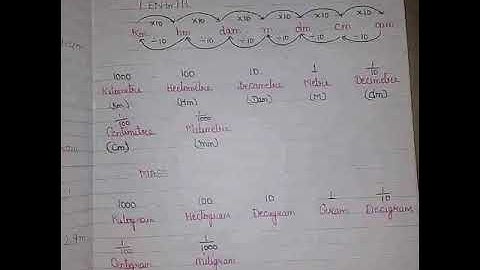 LENGTH
×10 ×10 ×10 ×10 ×10 ×10
Km hm dam m dm cm mm
÷10 ÷10 ÷10 ÷10 ÷10 ÷10
1000 100 10 1 1/10
Kilometre Hectometre Decametre Metre Decimetre
(Km) (Hm) (Dam) (M) (dm)
1/100 1/1000
Centimetre Milimetre
(cm) (mm)
MASS
1000 100 10 1 1/10
Kilogram Hectogram Decagram Gram Decigram
1/100 1/1000
Centigram Miligram